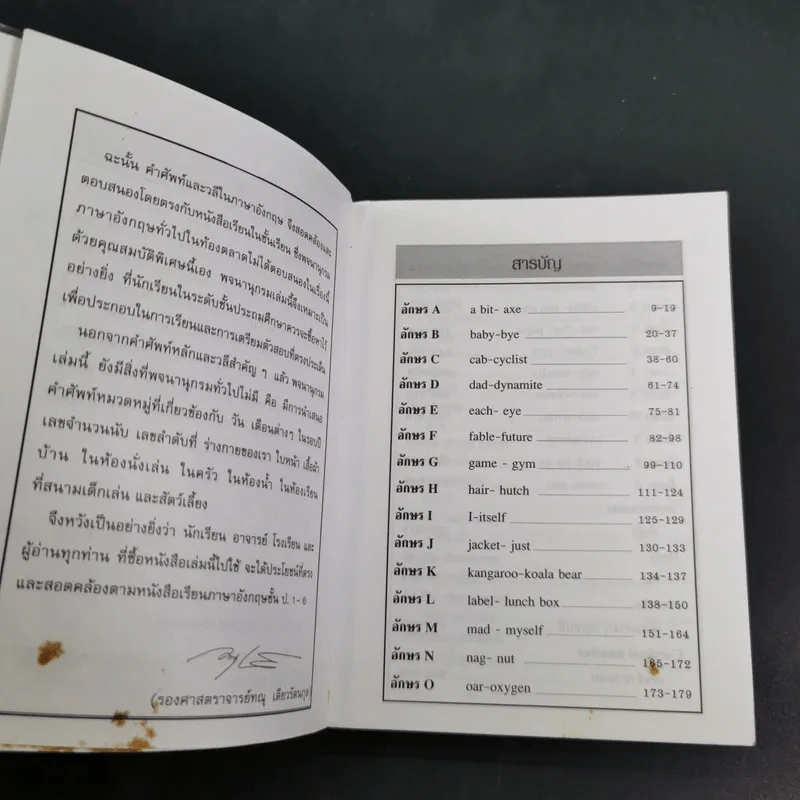 ฉะนั้น คำศัพท์และวลีในภาษาอังกฤษ จึงสอดคล้องและ
ตอบสนองโดยตรงกับหนังสือเรียนในชั้นเรียน ซึ่งพจนานุกรม
ภาษาอังกฤษทั่วไปในท้องตลาดไม่ได้ตอบสนองในเรื่องนี้
ด้วยคุณสมบัติพิเศษนี้เอง พจนานุกรมเล่มนี้จึงเหมาะเป็น
อย่างยิ่ง ที่นักเรียนในระดับชั้นประถมศึกษาควรจะซื้อหาไว้
เพื่อประกอบในการเรียนและการเตรียมตัวสอบที่ตรงประเด็น
นอกจากคำศัพท์หลักและวลีสำคัญ ๆ แล้ว พจนานุกรม
เล่มนี้ ยังมีสิ่งที่พจนานุกรมทั่วไปไม่มี คือ มีการนำเสนอ
คำศัพท์หมวดหมู่ที่เกี่ยวข้องกับ วัน เดือนต่างๆ ในรอบปี
เลขจำนวนนับ เลขลำดับที่ ร่างกายของเรา ใบหน้า เสื้อผ้า
บ้าน ในห้องนั่งเล่น ในครัว ในห้องน้ำ ในห้องเรียน
ที่สนามเด็กเล่น และสัตว์เลี้ยง
จึงหวังเป็นอย่างยิ่งว่า นักเรียน อาจารย์ โรงเรียน และ
ผู้อ่านทุกท่าน ที่ซื้อหนังสือเล่มนี้ไปใช้ จะได้ประโยชน์ที่ตรง
และสอดคล้องตามหนังสือเรียนภาษาอังกฤษชั้น ป. 1-6
(รองศาสตราจารย์ทณุ เตียวรัตนกุล)
สารบัญ
อักษร A a bit- axe 9-19
อักษร B baby-bye 20-37
อักษร C cab-cyclist 38-60
อักษร D dad-dynamite 61-74
อักษร E each- eye 75-81
อักษร F fable-future 82-98
อักษร G game - gym 99-110
อักษร H hair- hutch 111-124
อักษร I I-itself 125-129
อักษร J jacket- just 130-133
อักษร K kangaroo-koala bear 134-137
อักษร L label- lunch box 138-150
อักษร M mad - myself 151-164
อักษร N nag- nut 165-172
อักษร O oar-oxygen 173-179